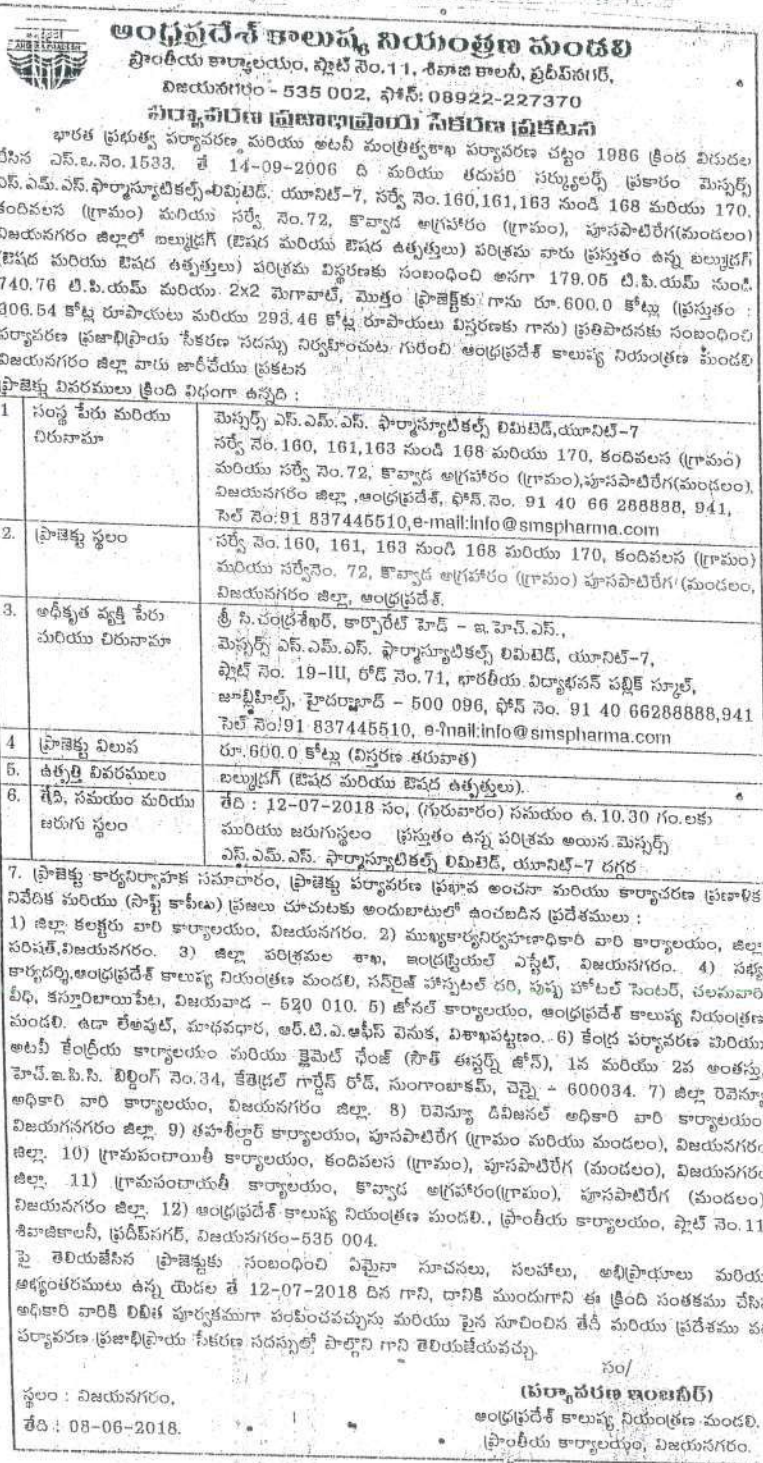 ఆంధ్రప్రదేశ్ కాలుష్య నియంత్రణ మండలి
ప్రాంతీయ కార్యాలయం, ప్లాట్ నెం.11, శివాజి కాలనీ, ప్రదీప్‌నగర్,
విజయనగరం - 535 002, ఫోన్: 08922-227370
పర్యావరణ ప్రజాభిప్రాయ సేకరణ ప్రకటన
భారత ప్రభుత్వ పర్యావరణ మరియు అటవీ మంత్రిత్వశాఖ పర్యావరణ చట్టం 1986 క్రింద విడుదల
చేసిన ఎస్.ఒ.నెం.1533. తే 14-09-2006 ది మరియు తదుపరి సర్క్యులర్స్ ప్రకారం మెస్సర్స్
ఎస్.ఎమ్.ఎస్.ఫార్మాస్యూటికల్స్ లిమిటెడ్. యూనిట్-7, సర్వే నెం.160,161,163 నుండి 168 మరియు 170,
కందివలస (గ్రామం) మరియు సర్వే నెం.72, కొవ్వాడ అగ్రహారం (గ్రామం), పూసపాటిరేగ(మండలం)
విజయనగరం జిల్లాలో బల్కుడ్రగ్ (ఔషద మరియు ఔషద ఉత్పత్తులు) పరిశ్రమ వారు ప్రస్తుతం ఉన్న బల్కుడ్రగ్
(ఔషద మరియు ఔషద ఉత్పత్తులు) పరిశ్రమ విస్తరణకు సంబంధించి అనగా 179.05 టి.పి.యమ్ నుండి
740.76 టి.పి.యమ్ మరియు 2x2 మెగావాట్, మొత్తం ప్రాజెక్ట్‌కు గాను రూ.600.0 కోట్లు (ప్రస్తుతం :
306.54 కోట్ల రూపాయలు మరియు 293.46 కోట్ల రూపాయలు విస్తరణకు గాను) ప్రతిపాదనకు సంబంధించి
పర్యావరణ ప్రజాభిప్రాయ సేకరణ సదస్సు నిర్వహించుట గురించి ఆంధ్రప్రదేశ్ కాలుష్య నియంత్రణ మండలి
విజయనగరం జిల్లా వారు జారీచేయు ప్రకటన
ప్రాజెక్టు వివరములు క్రింది విధంగా ఉన్నది :
1 సంస్థ పేరు మరియు చిరునామా
మెస్సర్స్ ఎస్.ఎమ్.ఎస్. ఫార్మాస్యూటికల్స్ లిమిటెడ్,యూనిట్-7
సర్వే నెం.160, 161,163 నుండి 168 మరియు 170, కందివలస (గ్రామం)
మరియు సర్వే నెం.72, కొవ్వాడ అగ్రహారం (గ్రామం),పూసపాటిరేగ(మండలం),
విజయనగరం జిల్లా ,ఆంధ్రప్రదేశ్, ఫోన్.నెం. 91 40 66 288888, 941,
సెల్ నెం:91 837445510,e-mail:info@smspharma.com
2. ప్రాజెక్టు స్థలం
సర్వే నెం.160, 161, 163 నుండి 168 మరియు 170, కందివలస (గ్రామం)
మరియు సర్వేనెం. 72, కొవ్వాడ అగ్రహారం (గ్రామం) పూసపాటిరేగ (మండలం,
విజయనగరం జిల్లా, ఆంధ్రప్రదేశ్.
3. అధీకృత వ్యక్తి పేరు మరియు చిరునామా
శ్రీ సి.చంద్రశేఖర్, కార్పొరేట్ హెడ్ - ఇ.హెచ్.ఎస్.,
మెస్సర్స్ ఎస్.ఎమ్.ఎస్. ఫార్మాస్యూటికల్స్ లిమిటెడ్, యూనిట్-7,
ప్లాట్ నెం. 19-III, రోడ్ నెం.71, భారతీయ విద్యాభవన్ పబ్లిక్ స్కూల్,
జూబ్లీహిల్స్, హైదరాబాద్ - 500 096, ఫోన్ నెం. 91 40 66288888,941
సెల్ నెం:91 837445510, e-mail:info@smspharma.com
4 ప్రాజెక్టు విలువ
రూ.600.0 కోట్లు (విస్తరణ తరువాత)
5. ఉత్పత్తి వివరములు
బల్కుడ్రగ్ (ఔషద మరియు ఔషద ఉత్పత్తులు).
6. తేది, సమయం మరియు జరుగు స్థలం
తేది : 12-07-2018 సం, (గురువారం) సమయం ఉ.10.30 గం.లకు
మరియు జరుగుస్థలం ప్రస్తుతం ఉన్న పరిశ్రమ అయిన మెస్సర్స్
ఎస్.ఎమ్.ఎస్. ఫార్మాస్యూటికల్స్ లిమిటెడ్, యూనిట్-7 దగ్గర
7. ప్రాజెక్టు కార్యనిర్వాహక సమాచారం, ప్రాజెక్టు పర్యావరణ ప్రభావ అంచనా మరియు కార్యాచరణ ప్రణాళిక
నివేదిక మరియు (సాఫ్ట్ కాపీలు) ప్రజలు చూచుటకు అందుబాటులో ఉంచబడిన ప్రదేశములు :
1) జిల్లా కలక్టరు వారి కార్యాలయం, విజయనగరం. 2) ముఖ్యకార్యనిర్వహణాధికారి వారి కార్యాలయం, జిల్లా
పరిషత్,విజయనగరం. 3) జిల్లా పరిశ్రమల శాఖ, ఇండస్ట్రియల్ ఎస్టేట్, విజయనగరం. 4) సభ్య
కార్యదర్శి,ఆంధ్రప్రదేశ్ కాలుష్య నియంత్రణ మండలి, సన్‌రైజ్ హాస్పటల్ దరి, పుష్ప హోటల్ సెంటర్, చలమవారి
వీధి, కస్తూరిబాయిపేట, విజయవాడ - 520 010. 5) జోనల్ కార్యాలయం, ఆంధ్రప్రదేశ్ కాలుష్య నియంత్రణ
మండలి. ఉడా లేఅవుట్, మాధవధార, ఆర్.టి.ఎ.ఆఫీస్ వెనుక, విశాఖపట్టణం. 6) కేంద్ర పర్యావరణ మరియు
అటవీ కేంద్రీయ కార్యాలయం మరియు క్లైమెట్ ఛేంజ్ (సౌత్ ఈస్టర్న్ జోన్), 1వ మరియు 2వ అంతస్తు,
హెచ్.ఇ.పి.సి. బిల్డింగ్ నెం.34, కేతెడ్రల్ గార్డేన్ రోడ్, నుంగాంబాకమ్, చెన్నై - 600034. 7) జిల్లా రెవెన్యూ
అధికారి వారి కార్యాలయం, విజయనగరం జిల్లా. 8) రెవెన్యూ డివిజనల్ అధికారి వారి కార్యాలయం
విజయగనగరం జిల్లా. 9) తహశీల్దార్ కార్యాలయం, పూసపాటిరేగ (గ్రామం మరియు మండలం), విజయనగరం
జిల్లా. 10) గ్రామపంచాయితీ కార్యాలయం, కందివలస (గ్రామం), పూసపాటిరేగ (మండలం), విజయనగరం
జిల్లా. 11) గ్రామపంచాయతీ కార్యాలయం, కొవ్వాడ అగ్రహారం(గ్రామం), పూసపాటిరేగ (మండలం)
విజయనగరం జిల్లా. 12) ఆంధ్రప్రదేశ్ కాలుష్య నియంత్రణ మండలి., ప్రాంతీయ కార్యాలయం, ప్లాట్ నెం.11
శివాజికాలనీ, ప్రదీప్‌నగర్, విజయనగరం-535 004.
పై తెలియజేసిన ప్రాజెక్టుకు సంబంధించి ఏమైనా సూచనలు, సలహాలు, అభిప్రాయాలు మరియు
అభ్యంతరములు ఉన్న యెడల తే 12-07-2018 దిన గాని, దానికి ముందుగాని ఈ క్రింది సంతకము చేసిన
అధికారి వారికి లిఖిత పూర్వకముగా పంపించవచ్చును మరియు పైన సూచించిన తేదీ మరియు ప్రదేశము వద్ద
పర్యావరణ ప్రజాభిప్రాయ సేకరణ సదస్సులో పాల్గొని గాని తెలియజేయవచ్చు.
సం/
(పర్యావరణ ఇంజనీర్)
స్థలం : విజయనగరం, ఆంధ్రప్రదేశ్ కాలుష్య నియంత్రణ మండలి.
తేది : 08-06-2018. ప్రాంతీయ కార్యాలయం, విజయనగరం.